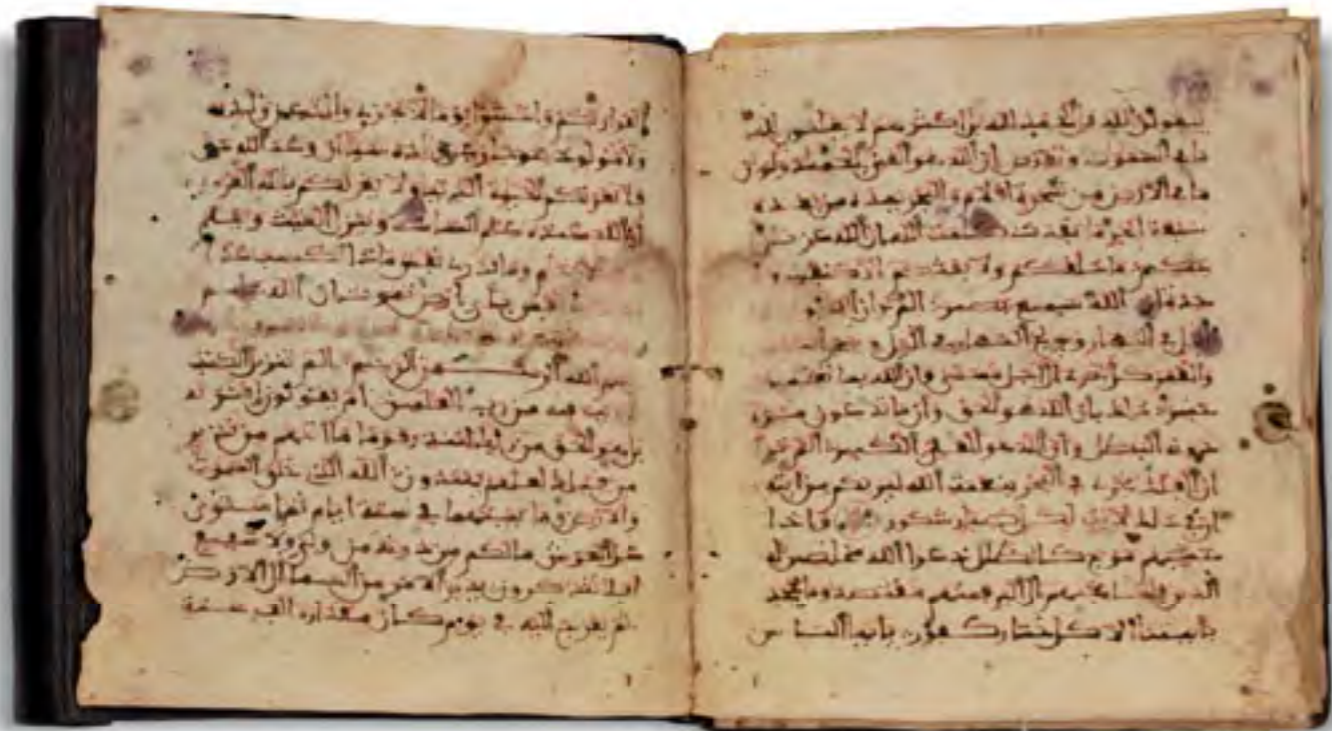 ليقولن الله قل الحمد لله بل اكثرهم لا يعلمون لله
ما في السموت والارض ان الله هو الغني الحميد ولو ان
ما في الارض من شجرة اقلام والبحر يمده من بعده
سبعة ابحر ما نفدت كلمت الله ان الله عزيز
حكيم ما خلقكم ولا بعثكم الا كنفس و
حدة ان الله سميع بصير الم تر ان الله يو
لج اليل في النهار ويولج النهار في اليل وسخر الشمس
والقمر كل يجري الى اجل مسمى وان الله بما تعملون
خبير ذلك بان الله هو الحق وان ما تدعون من د
ونه البطل وان الله هو العلي الكبير الم تر
ان الفلك تجري في البحر بنعمت الله ليريكم من ايته
ان في ذلك لايت لكل صبار شكور واذا
غشيهم موج كالظلل دعوا الله مخلصين له
الدين فلما نجيهم الى البر فمنهم مقتصد وما يجحد
بايتنا الا كل ختار كفور يايها الناس
اتقوا ربكم واخشوا يوما لا يجزي والد عن ولده
ولا مولود هو جاز عن والده شيا ان وعد الله حق
فلا تغرنكم الحيوة الدنيا ولا يغرنكم بالله الغرور
ان الله عنده علم الساعة وينزل الغيث ويعلم
ما في الارحام وما تدري نفس ماذا تكسب غدا
نفس باي ارض تموت ان الله عليم
بسم الله الرحمن الرحيم الم تنزيل الكتب
لا ريب فيه من رب العلمين ام يقولون افتريه
بل هو الحق من ربك لتنذر قوما ما اتيهم من نذير
من قبلك لعلهم يهتدون الله الذي خلق السموت
والارض وما بينهما في ستة ايام ثم استوى
على العرش ما لكم من دونه من ولي ولا شفيع
افلا تتذكرون يدبر الامر من السما الى الارض
ثم يعرج اليه في يوم كان مقداره الف سنة